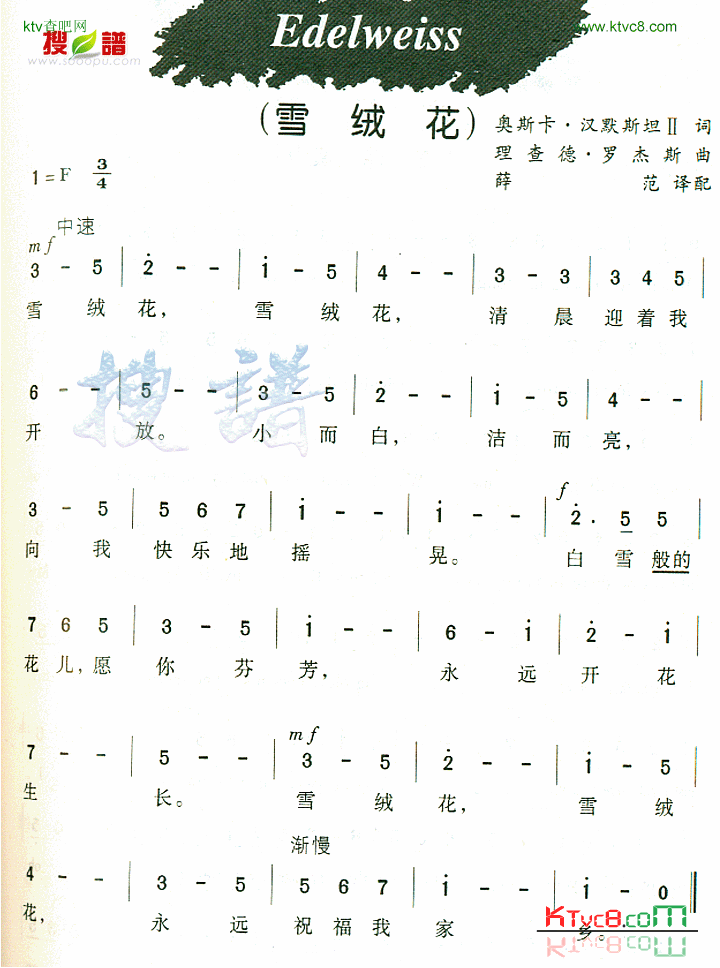 ktv查吧网
www.ktvc8.com
搜谱
www.sooopu.com
Edelweiss
(雪绒花)
奥斯卡·汉默斯坦Ⅱ 词
理查德·罗杰斯 曲
薛 范 译配
1=F 3/4
中速
mf
3 - 5 | 2̇ - - | 1̇ - 5 | 4 - - | 3 - 3 | 3 4 5 |
雪 绒 花, 雪 绒 花, 清 晨 迎 着 我
6 - - | 5 - - | 3 - 5 | 2̇ - - | 1̇ - 5 | 4 - - |
开 放。 小 而 白, 洁 而 亮,
搜譜
3 - 5 | 5 6 7 | 1̇ - - | 1̇ - - | 2̇· 5 5 |
f
向 我 快 乐 地 摇 晃。 白 雪 般的
7 6 5 | 3 - 5 | 1̇ - - | 6 - 1̇ | 2̇ - 1̇ |
花 儿,愿 你 芬 芳, 永 远 开 花
mf
7 - - | 5 - - | 3 - 5 | 2̇ - - | 1̇ - 5 |
生 长。 雪 绒 花, 雪 绒
渐慢
4 - - | 3 - 5 | 5 6 7 | 1̇ - - | 1̇ - 0 ‖
花, 永 远 祝 福 我 家 乡。
KTvc8.com